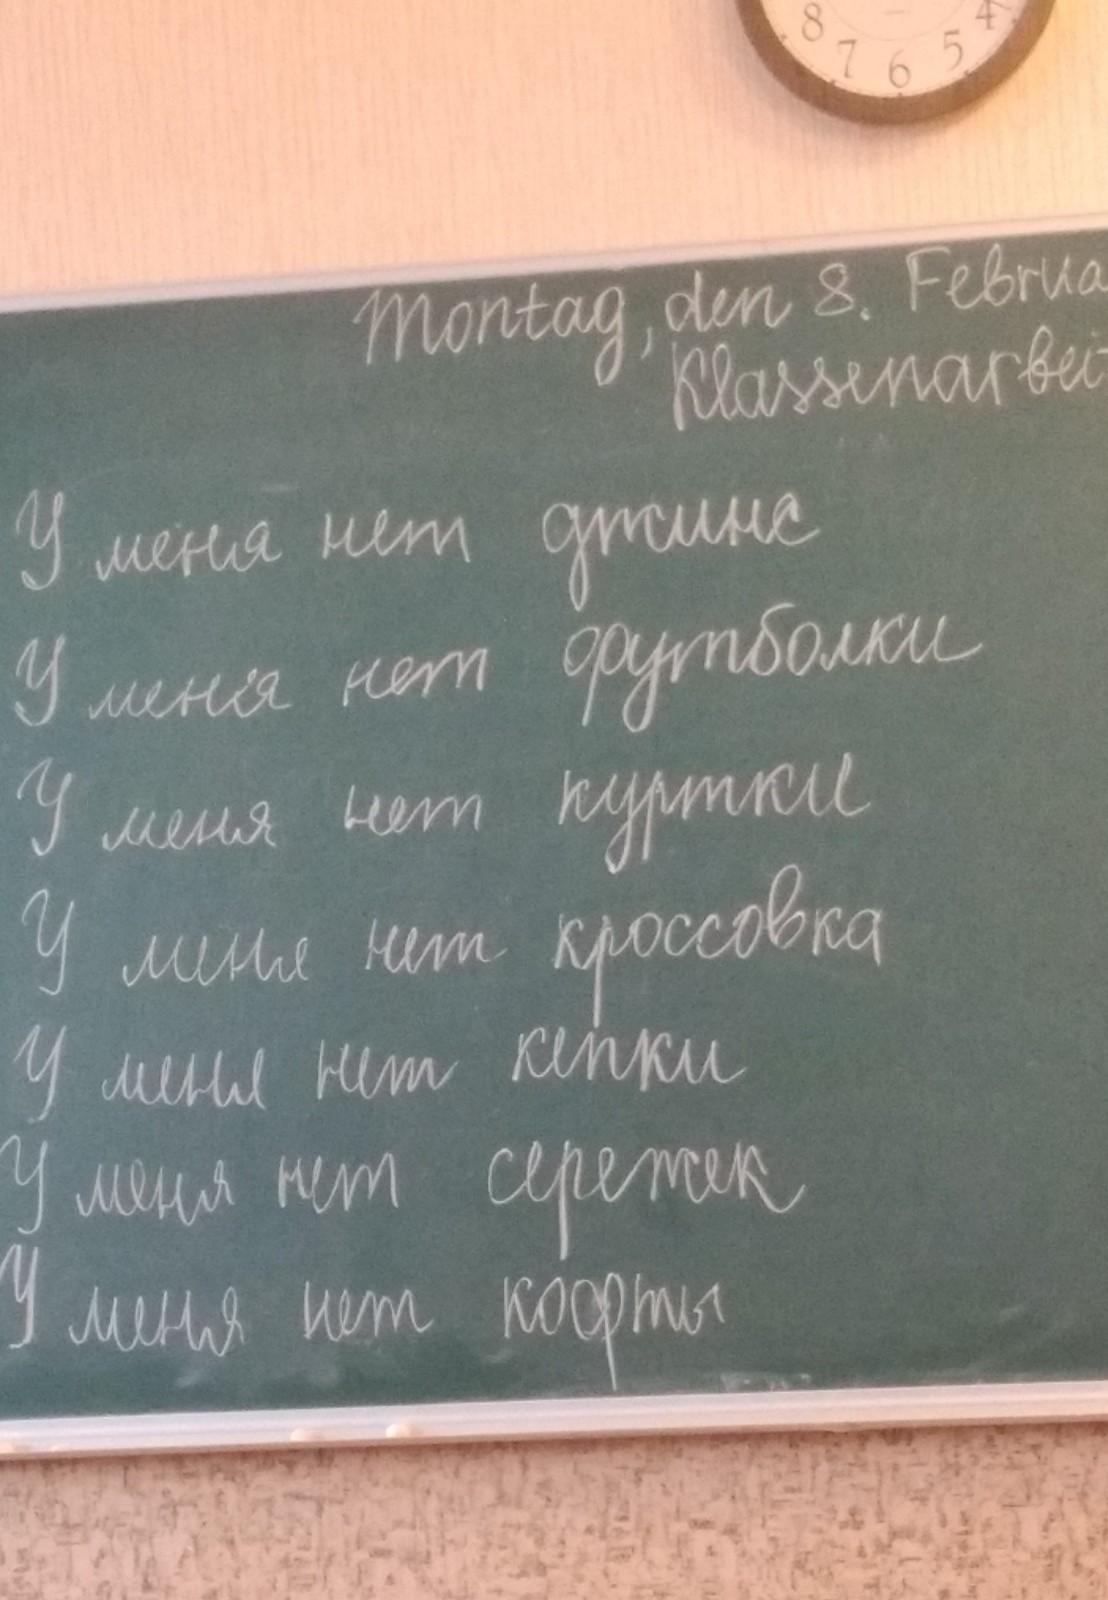 8 7 6 5 4
Montag, den 8. Februa
Klassenarbeit
У меня нет джинс
У меня нет футболки
У меня нет куртки
У меня нет кроссовка
У меня нет кепки
У меня нет сережек
У меня нет кофты